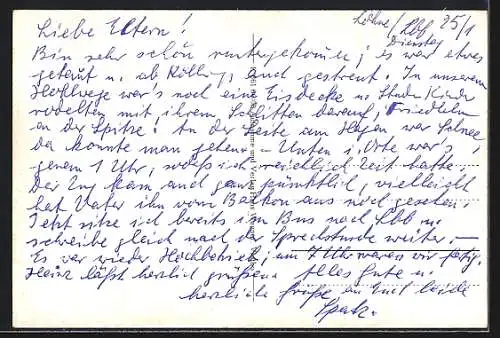 Löhne / Lbb 25/1
Dienstag
Liebe Eltern!
Bin sehr schön runtergekommen; es war etwas
getaut u. ab Rölling, und gestreut. In unserem
war's noch eine Eisdecke u. Kinder
rodelten mit ihrem Schlitten darauf, Friedhelm
an der Spitze! An der Seite am war Schnee,
da konnte man gehen. – Unten i. Orte war's
genau 1 Uhr, sodaß ich reichlich Zeit hatte.
Der Zug kam auch ganz pünktlich, vielleicht
hat Vater ihn vom Balkon aus noch gesehen.
Jetzt sitze ich bereits im Bus nach Lbb u.
schreibe gleich nach der Sprechstunde weiter. –
Es war wieder Hochbetrieb; um 7 Uhr waren wir fertig.
Heinz läßt herzlich grüßen. Alles Gute u.
herzliche Grüße an Euch beide
Spatz.